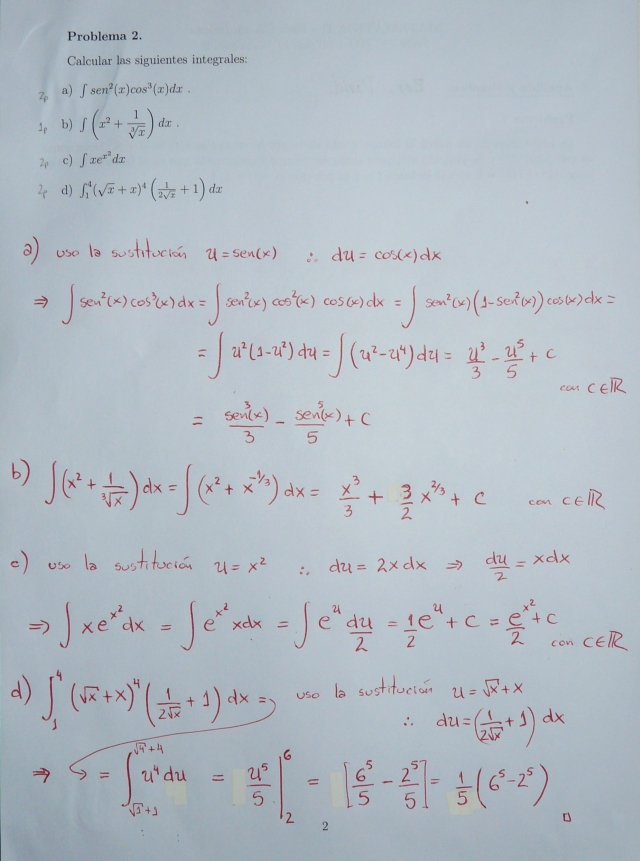 Problema 2.
Calcular las siguientes integrales:
2p a) ∫ sen²(x)cos³(x)dx .
1p b) ∫ (x² + 1/∛x) dx .
2p c) ∫ xe^{x²}dx
2p d) ∫₁⁴(√x + x)⁴ (1/(2√x) + 1) dx
a) uso la sustitución u = sen(x) ∴ du = cos(x)dx
⇒ ∫ sen²(x) cos³(x) dx = ∫ sen²(x) cos²(x) cos(x) dx = ∫ sen²(x)(1-sen²(x)) cos(x) dx =
= ∫ u²(1-u²) du = ∫ (u²-u⁴) du = u³/3 - u⁵/5 + c
con c∈ℝ
= sen³(x)/3 - sen⁵(x)/5 + c
b) ∫ (x² + 1/∛x) dx = ∫ (x² + x^{-1/3}) dx = x³/3 + 3/2 x^{2/3} + c con c∈ℝ
c) uso la sustitución u = x² ∴ du = 2x dx ⇒ du/2 = xdx
⇒ ∫ xe^{x²}dx = ∫ e^{x²} xdx = ∫ e^u du/2 = 1/2 e^u + c = e^{x²}/2 + c
con c∈ℝ
d) ∫₁⁴ (√x + x)⁴ (1/(2√x) + 1) dx = uso la sustitución u = √x + x
∴ du = (1/(2√x) + 1) dx
⇒ = ∫_{√1+1}^{√4+4} u⁴ du = u⁵/5 |₂⁶ = [6⁵/5 - 2⁵/5] = 1/5 (6⁵-2⁵)
2